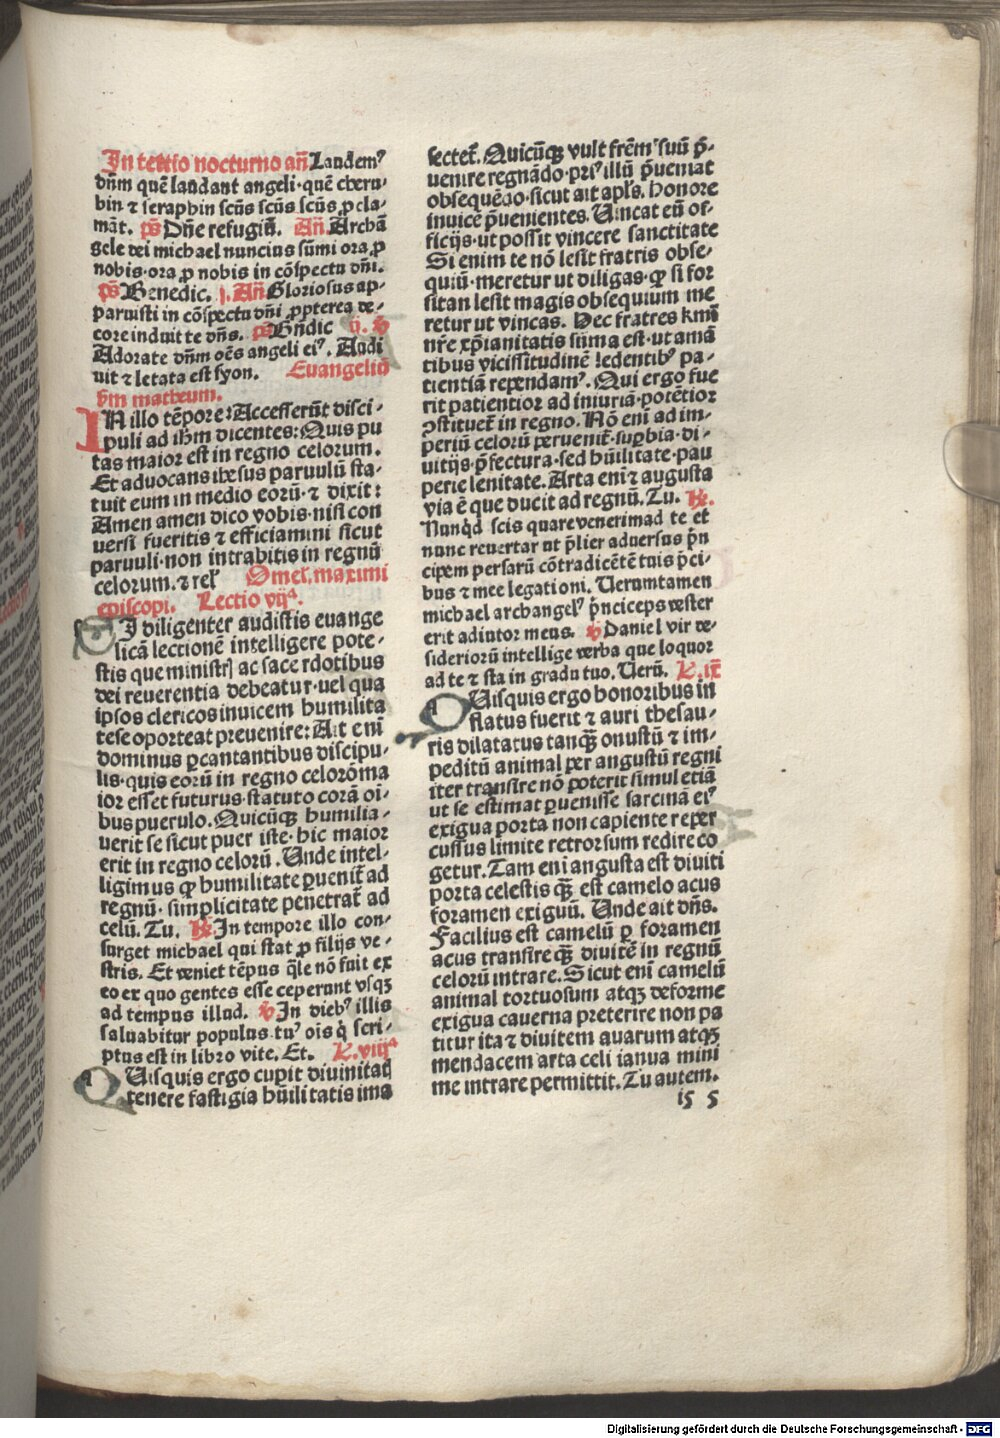 In tertio nocturno añ Laudemꝰ
dñm quē laudant angeli·quē cheru-
bin ⁊ seraphin scũs scũs scũs ꝓcla-
māt. ps̄ Dñe refugiũ. Añ. Archā
gele dei michael nuncius sũmi ora ꝓ
nobis·ora ꝓ nobis in cōspectu dñi.
ps̄ Benedic. j. Añ Gloriosus ap-
paruisti in cōspectu dñi ꝓpterea de-
core induit te dñs. ps̄ Bñdic ij. ꝟ
Adorate dñm oēs angeli eiꝰ. Audi
uit ⁊ letata est syon. Euangeliū
ẜm matheum.
IN illo tēpore: Accesserũt disci-
puli ad ihm̄ dicentes: Quis pu
tas maior est in regno celorum.
Et aduocans ihesus paruulũ sta-
tuit eum in medio eorũ·⁊ dixit:
Amen amen dico vobis·nisi con
uersi fueritis ⁊ efficiamini sicut
paruuli·non intrabitis in regnũ
celorum.⁊ relꝰ Omel. maximi
episcopi. Lectio vijᵃ.
SI diligenter audistis euange
licā lectionē intelligere pote-
stis que ministrꝭ ac sacerdotibus
dei reuerentia debeatur·uel qua
ipsos clericos inuicem humilita
te se oporteat preuenire: Ait enĩ
dominus ꝑcantantibus discipu-
lis·quis eorũ in regno celorō ma
ior esset futurus·statuto corā oī-
bus puerulo. Quicũqꝫ humilia-
uerit se sicut puer iste·hic maior
erit in regno celorũ. Unde intel-
ligimus qꝫ humilitate ꝑuenit̃ ad
regnũ·simplicitate penetrat̃ ad
celũ. Tu. ℞ In tempore illo con-
surget michael qui stat ꝓ filijs ve-
stris. Et veniet tēpus q̃le nō fuit ex
eo ex quo gentes esse ceperunt vsqꝫ
ad tempus illud. ꝟ In diebꝰ illis
saluabitur populus tuꝰ oīs q̇ scri-
ptus est in libro vite. Et. L. viijᵃ
QUisquis ergo cupit diuinitatꝭ
tenere fastigia hũilitatis ima
sectet̃. Quicũqꝫ vult frēm suũ p̃-
uenire regnādo·priꝰ illũ p̃ueniat
obsequēdo·sicut ait apls̄. Honore
inuicē p̃uenientes. Uincat eũ of-
ficijs·ut possit vincere sanctitate
Si enim te nō lesit fratris obse-
quiũ·meretur ut diligas·qꝫ si for
sitan lesit magis obsequium me
retur ut vincas. Hec fratres kmi
nr̄e xp̄ianitatis sũma est·ut amā
tibus vicissitudinē ledentibꝰ pa-
tientiā rependamꝰ. Qui ergo fue
rit patientior ad iniuriā·potētior
ꝯstituet̃ in regno. Nō enĩ ad im-
periũ celorũ peruenit̃·suꝑbia·di-
uitijs·p̃fectura·sed hũilitate·pau
perie lenitate. Arta enĩ ⁊ augusta
via ē que ducit ad regnũ. Tu. ℞.
Nunq̇d scis quare venerim ad te et
nunc reuertar ut p̃lier aduersus p̃n
cipem persarũ cōtradicētē tuis p̃ci-
bus ⁊ mee legationi. Uerumtamen
michael archangelꝰ p̃nceps vester
erit adiutor meus. ꝟ Daniel vir de-
sideriorũ intellige verba que loquor
ad te ⁊ sta in gradu tuo. Uerũ. L. ix̄
QUisquis ergo honoribus in
flatus fuerit ⁊ auri thesau-
ris dilatatus tanqꝫ onustũ ⁊ im-
peditũ animal per angustũ regni
iter transire nō poterit simul etiā
ut se estimat ꝑuenisse sarcinā eiꝰ
exigua porta non capiente reper
cussus limite retrorsum redire co
getur. Tam enĩ angusta est diuiti
porta celestis qꝫ est camelo acus
foramen exiguũ. Unde ait dñs.
Facilius est camelũ ꝑ foramen
acus transire qꝫ diuitē in regnũ
celorũ intrare. Sicut enĩ camelũ
animal tortuosum atqꝫ deforme
exigua cauerna preterire non pa
titur ita ⁊ diuitem auarum atqꝫ
mendacem arta celi ianua mini
me intrare permittit. Tu autem.
is 5
Digitalisierung gefördert durch die Deutsche Forschungsgemeinschaft - DFG